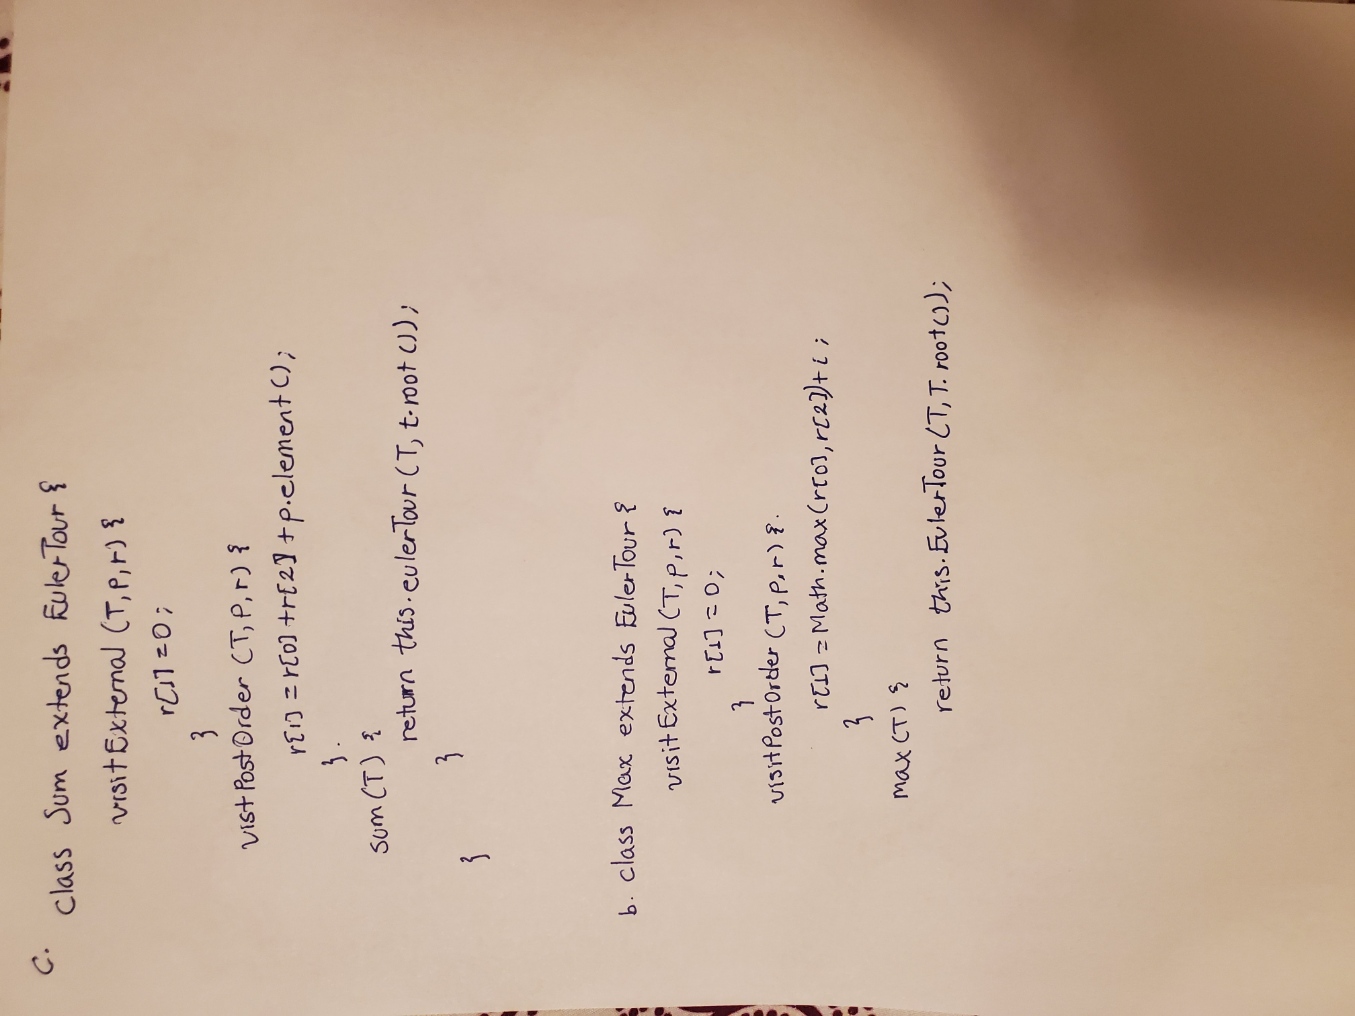 c.
class Sum extends EulerTour {
visitExternal (T, p, r) {
r[1] = 0;
}
vistPostOrder (T, P, r) {
r[1] = r[0] + r[2] + p.element();
}.
sum (T) {
return this.eulerTour (T, t.root());
}
}
b. class Max extends EulerTour {
visitExternal (T, p, r) {
r[1] = 0;
}
visitPostOrder (T, p, r) {.
r[1] = Math.max(r[0], r[2]) + i ;
}
max (T) {
return this.EulerTour (T, T. root());